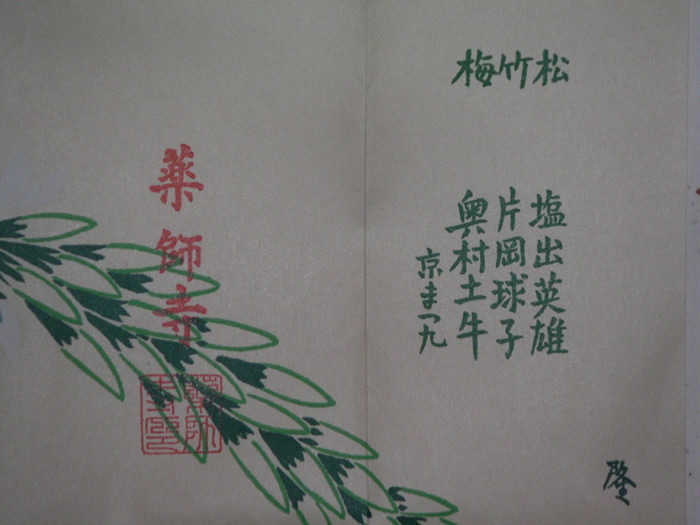 松竹梅
塩出英雄
片岡球子
奥村土牛
京まつ九
薬師寺